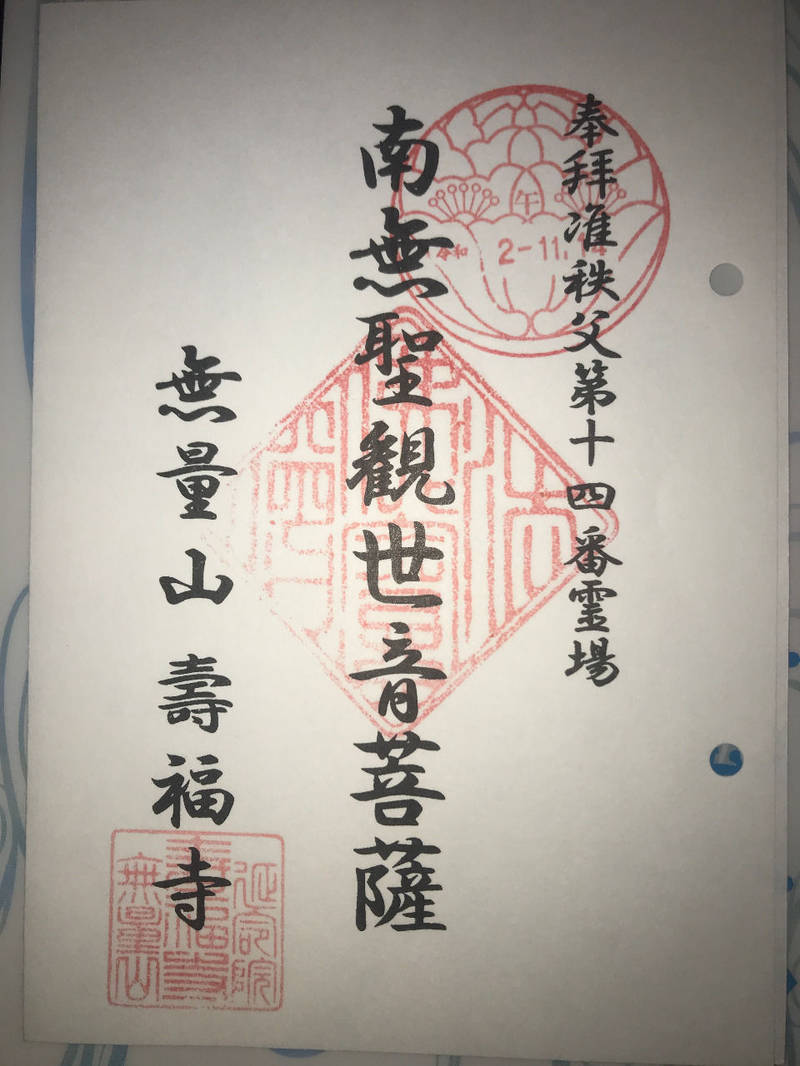 奉拜准秩父第十四番霊場
午
令和 2-11.14
南無聖観世音菩薩
無量山 壽福寺
延命院
壽福寺
無量山